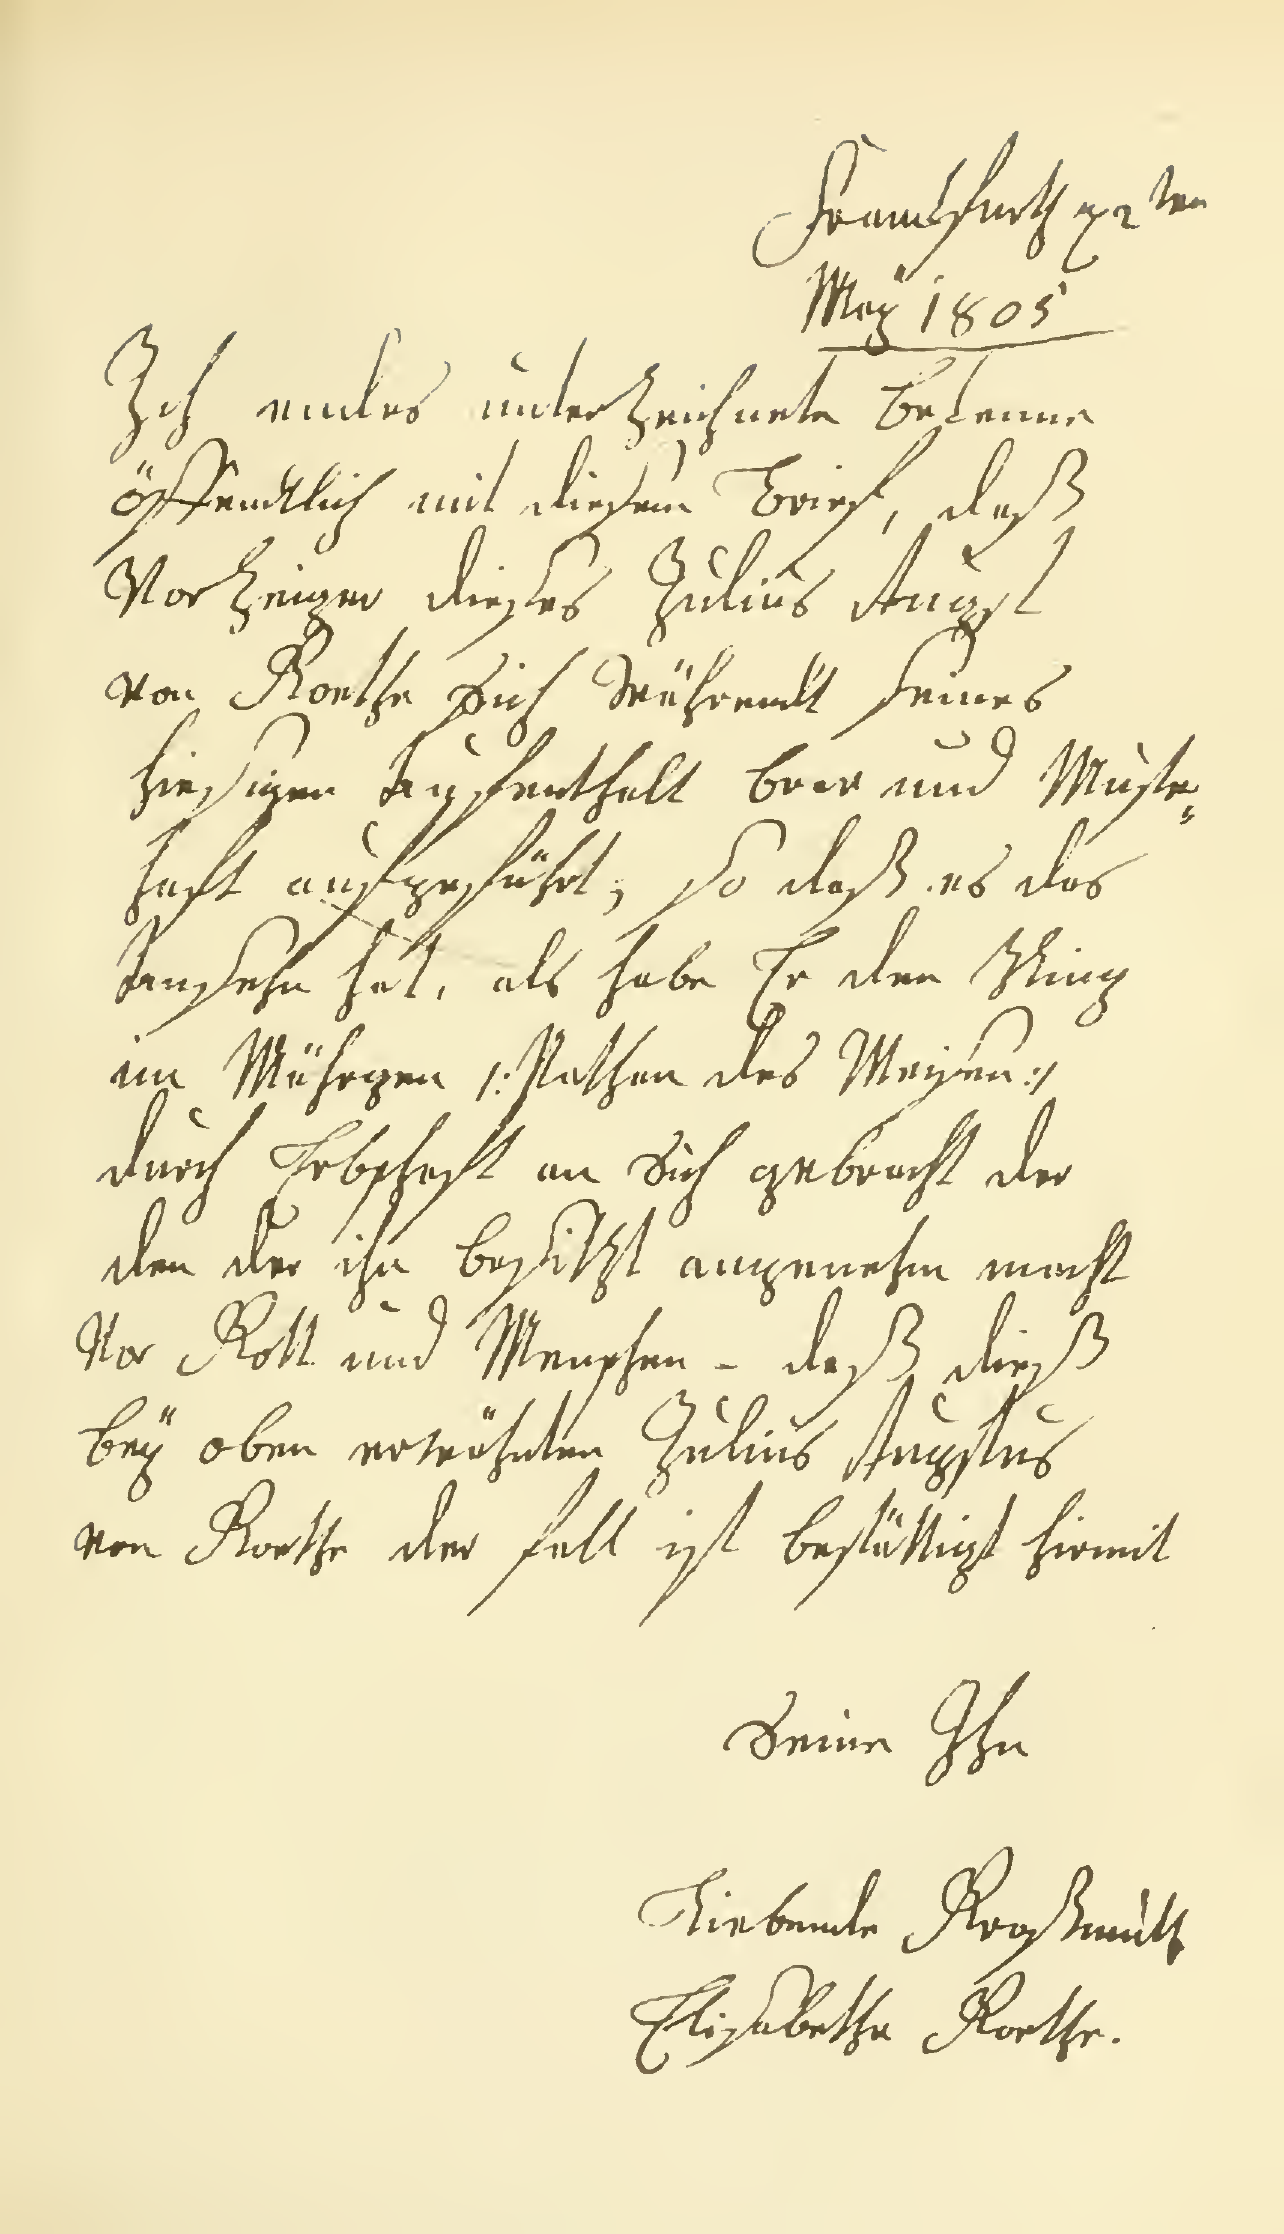 Franckfurth den
May 1805
Ich endes unterzeichnete Bekenne
öffendtlich mit diesem Brief, daß
Vorzeiger dieses Julius Augst
von Goethe Sich Währendt seines
hiesigen Auffenthalt brav und Muster-
haft aufgeführt; so daß es das
Ansehn hat, als habe Er den Ring
im Mährgen /: Nathan des Weisen:/
durch Erbschaft an Sich gebracht der
den der ihn besitzt angenehm macht
Vor Gott und Menschen – daß dieß
bey oben erwähnten Julius Augstus
von Goethe der fall ist bestättigt hirmit
Seine Ihn
Liebende Großmutter
Elisabetha Goethe.